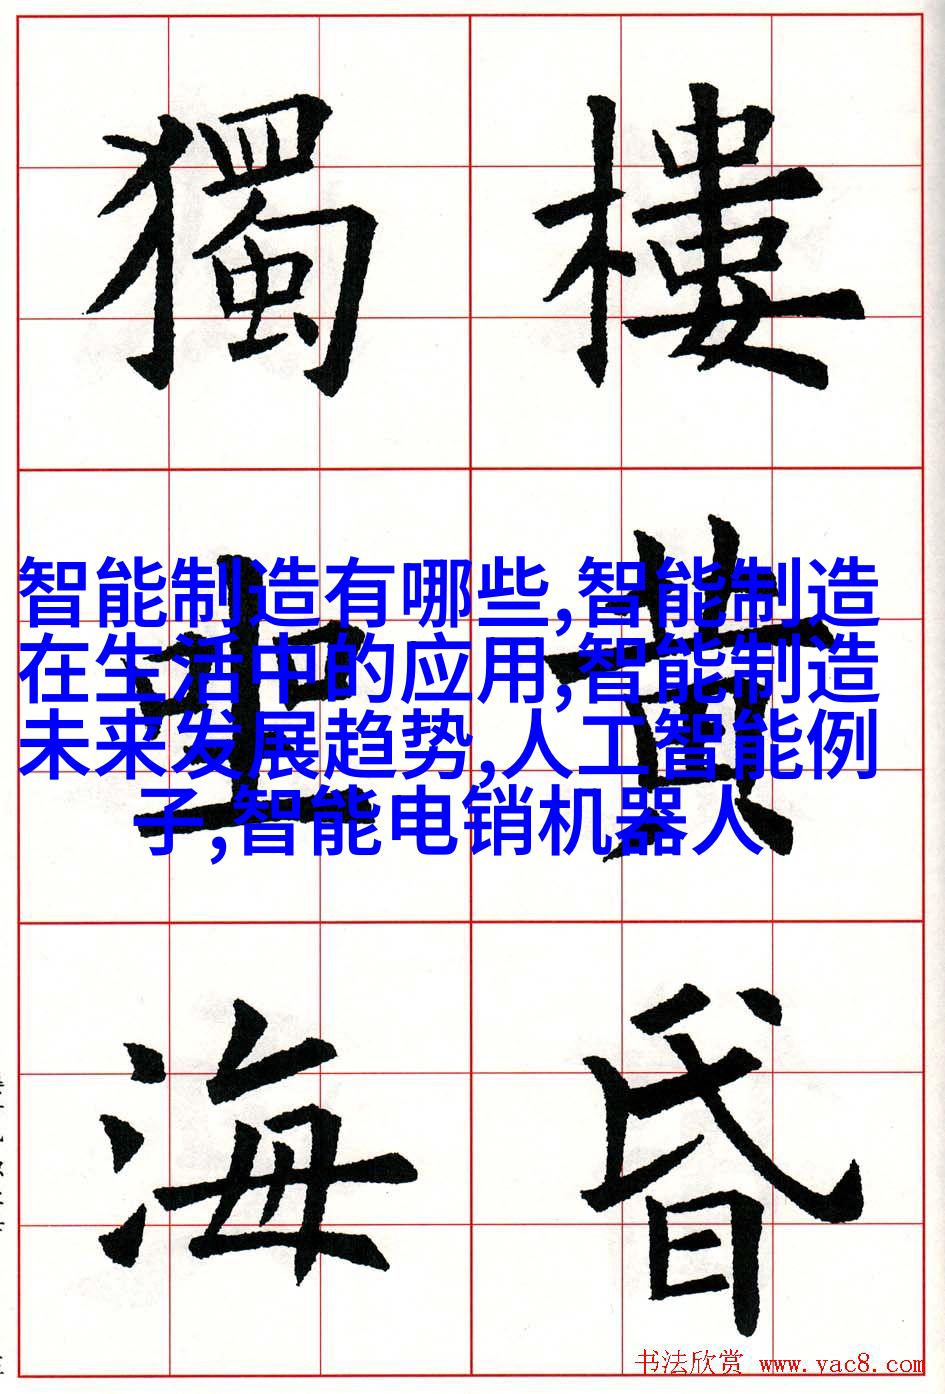 樓黃昏
獨坐海
智能制造有哪些,智能制造
在生活中的应用,智能制造
未来发展趋势,人工智能例
子,智能电销机器人
书法欣赏 www.yac8.com